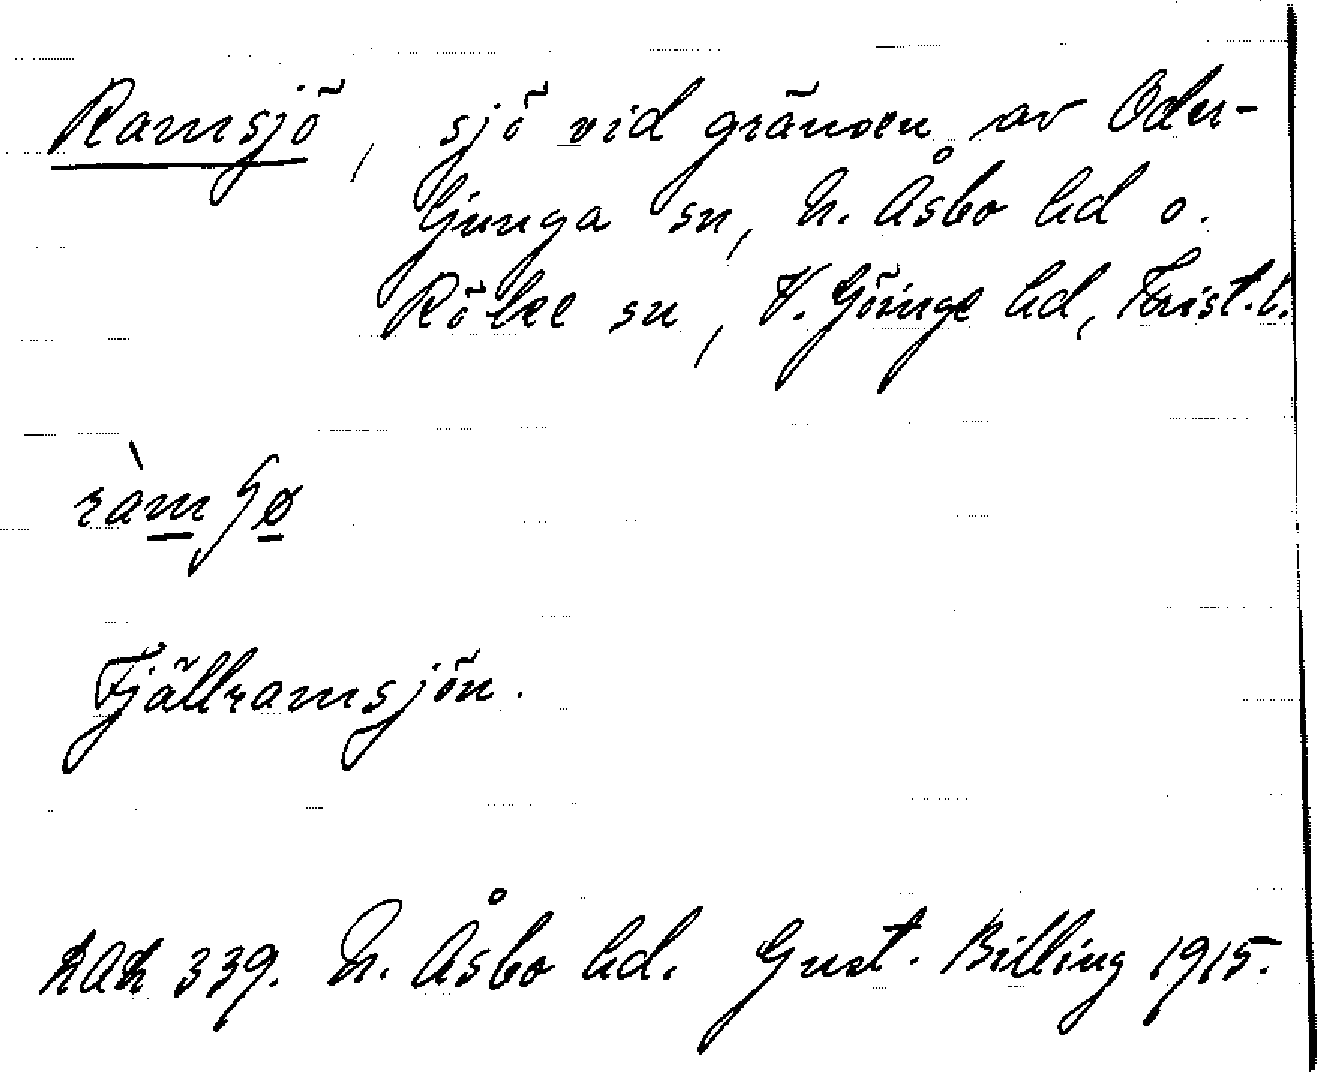 Ramsjö, sjö vid gränsen av Oder-
ljunga sn, N. Åsbo hd o.
Röke sn, V. Göinge hd, Krist. l.
ràmʃø
Fjällramsjön.
RAK 339. N. Åsbo hd. Gust. Billing 1915.